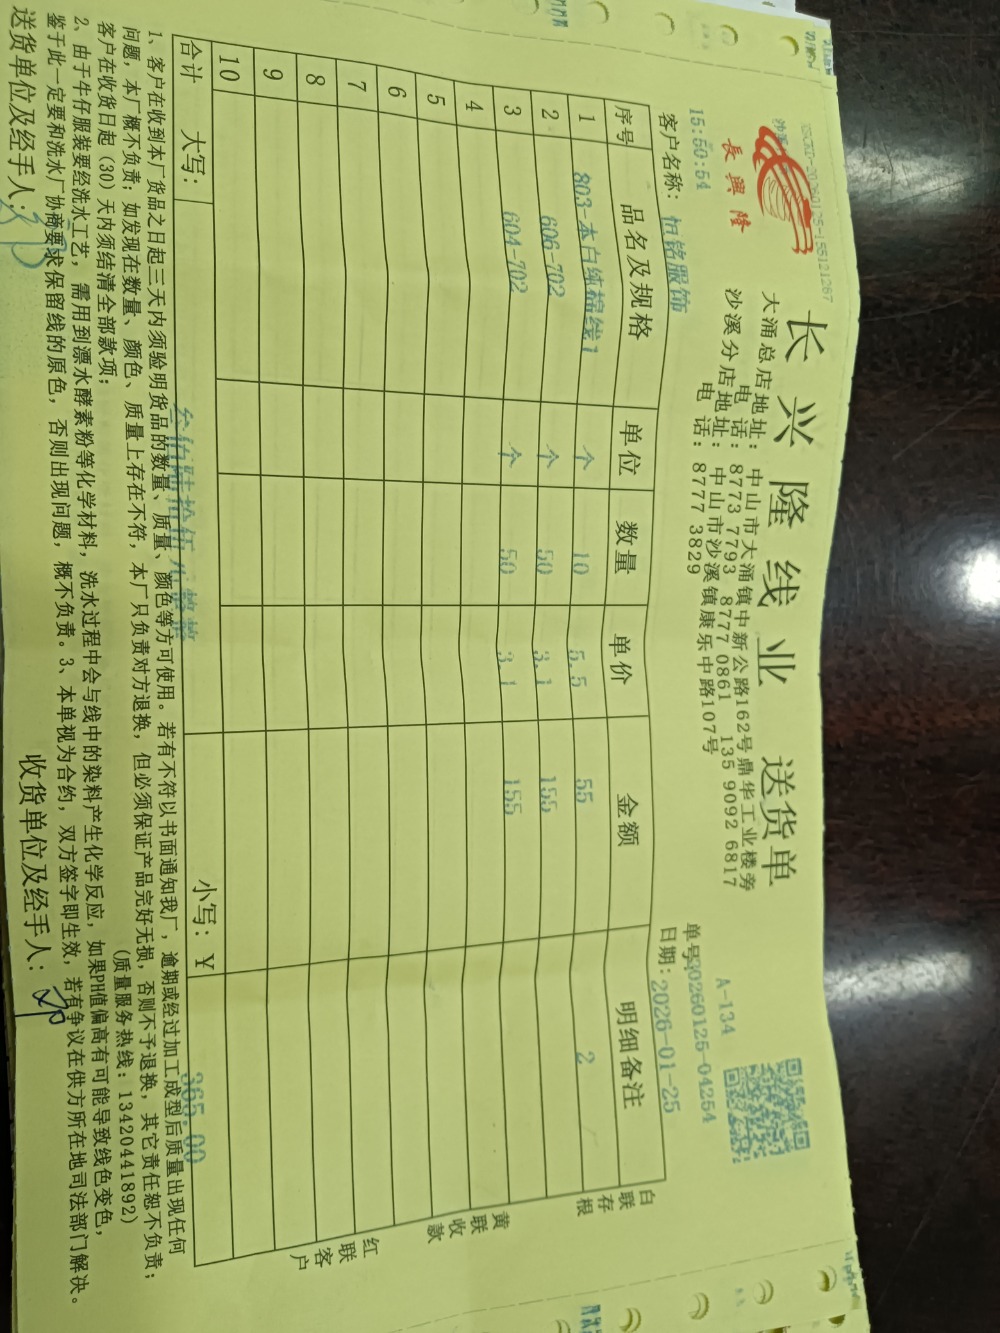 长兴隆线业 送货单
長興隆
大涌总店地址: 中山市大涌镇中新公路162号鼎华工业楼旁
电 话: 8773 7793 8777 0861 135 9092 6817
沙溪分店地址: 中山市沙溪镇康乐中路107号
电 话: 8777 3829
A-134
15:50:54
单号20260125-04254
客户名称: 恒铭服饰 日期: 2026-01-25
序号 品名及规格 单位 数量 单价 金额 明细备注
1 803-本白纯棉线1 个 10 5.5 55 2
2 606-702 个 50 3.1 155
3 604-702 个 50 3.1 155
4
5
6
7
8
9
10
合计 大写: 叁佰陆拾伍元整 小写: ¥ 365.00
白联存根
黄联收款
红联客户
1、客户在收到本厂货品之日起三天内须验明货品的数量、质量、颜色等方可使用。若有不符以书面通知我厂,逾期或经过加工成型后质量出现任何
问题,本厂概不负责;如发现在数量、颜色、质量上存在不符,本厂只负责对方退换,但必须保证产品完好无损,否则不予退换,其它责任恕不负责;
客户在收货日起(30)天内须结清全部款项; (质量服务热线: 13420441892)
2、由于牛仔服装要经洗水工艺,需用到漂水酵素粉等化学材料,洗水过程中会与线中的染料产生化学反应,如果PH值偏高有可能导致线色变色,
鉴于此一定要和洗水厂协商要求保留线的原色,否则出现问题,概不负责。3、本单视为合约,双方签字即生效,若有争议在供方所在地司法部门解决。
送货单位及经手人: 收货单位及经手人: 邓